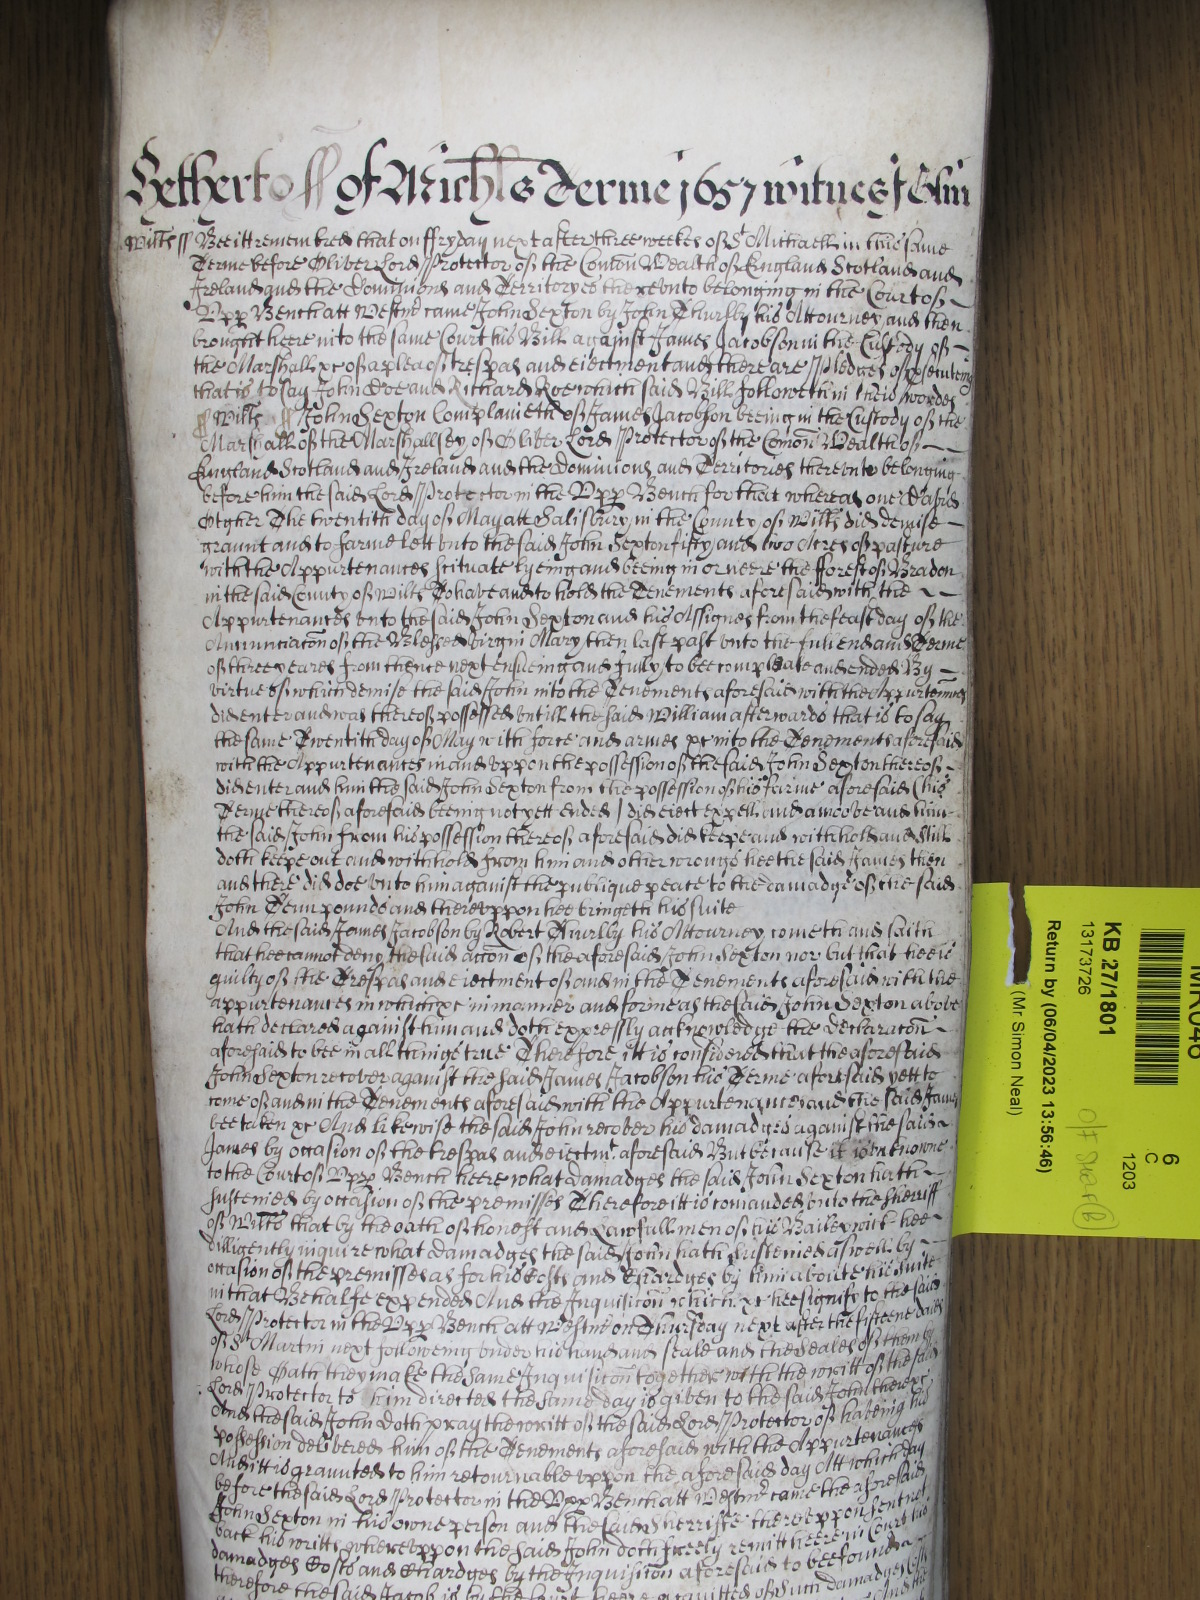 Yet the Roll of Mich'is Terme 1657 witnes Glin
Wiltss ss Bee itt remembred that on ffryday next after three weekes of St Michaell in this same
Terme before Oliver Lord Protector of the Comon Wealth of England Scotland and
Ireland and the Dominions and Territoryes thereunto belonging in the Court of
Upp Bench att Westmr came John Sexton by John Thurlby his Attourney and then
brought heere into the same Court his Bill against James Jacobson in the Custody of
the Marshall xc of a plea of trespas and eiectment and there are Pledges of prosecuting
that is to say John Doe and Richard Roe which said Bill followeth in theis wordes
ss Wilts ss John Sexton Complaineth of James Jacobson beeing in the Custody of the
Marshall of the Marshallsey of Oliver Lord Protector of the Comon Wealth of
England Scotland and Ireland and the Dominions and Territories thereunto belonging
before him the said Lord Protector in the Upp Bench for that whereas one David
Otgher The twentith day of May att Salisbury in the County of Wilts did demise
graunt and to farme lett unto the said John Sexton fifty and two Acres of pasture
with the Appurtenances scituate lyeing and beeing in or neere the fforest of Bradon
in the said County of Wilts To have and to hold the Tenements aforesaid with the
Appurtenances unto the said John Sexton and his Assignes from the feast day of the
Annunciacon of the Blessed Virgin Mary then last past unto the full end and Terme
of three yeares from thence next ensueing and fully to bee compleate and ended By
virtue of which demise the said John into the Tenements aforesaid with the Appurtenances
did enter and was thereof possessed untill the said William afterwards that is to say
the same Twentith day of May with force and armes xc into the Tenements aforesaid
with the Appurtenances in and uppon the possession of the said John Sexton thereof
did enter and him the said John Sexton from the possession of his farme aforesaid (his
Terme thereof aforesaid beeing not yett ended) did eiect expell and amove and him
the said John from his possession thereof aforesaid did keepe and withhold and still
doth keepe out and withhold from him and other wrongs hee the said James then
and there did doe unto him against the publique peace to the damadge of the said
John Tenn pounds and thereuppon hee bringeth his suite
And the said James Jacobson by Robert Thurlby his Attourney cometh and saith
that hee cannot deny the said accon of the aforesaid John Sexton nor but that hee is
guilty of the Trespas and eiectment of and in the Tenements aforesaid with the
appurtenances in which xc in manner and forme as the said John Sexton above
hath declared against him and doth expressly acknowledge the declaracon
aforesaid to bee in all things true Therefore itt is considered that the aforesaid
John Sexton recover against the said James Jacobson his Terme aforesaid yett to
come of and in the Tenements aforesaid with the Appurtenances and the said James
bee taken xc And likewise the said John recover his damadges against the said
James by occasion of the trespas and eiectmt aforesaid But because it is unknowne
to the Court of Upp Bench heere what damadges the said John Sexton hath
susteined by occasion of the premisses Therefore itt is comanded unto the Sherriff
of Wilts that by the oath of honest and Lawfull men of his Bailewick hee
dilligently inquire what damadges the said John hath susteined aswell by
occasion of the premisses as for his Costs and Chardges by him about his suite
in that Behalfe expended And the Inquisicon which xc hee signify to the said
Lord Protector in the Upp Bench att Westmr on Thursday next after the fifteene daies
of St Martin next followeing under his hand and seale and the Seales of them by
whose Oath they make the same Inquisicon together with the writt of the said
Lord Protector to him directed the same day is given to the said John there xc
And the said John doth pray the writt of the said Lord Protector of haveing his
possession delivered him of the Tenements aforesaid with the Appurtenances
And itt is graunted to him retournable uppon the aforesaid day Att which day
before the said Lord Protector in the Upp Bench att Westmr came the aforesaid
John Sexton in his owne person and the said Sherriffe thereuppon sent not
back his writts whereuppon the said John doth freely remitt heere in Court his
damadges Costs and Chardges by the Inquisicon aforesaid to bee found
therefore the said Jacob is by the Court heere acquitted of such damadges
KB 27/1801
13173726
Return by (06/04/2023 13:56:46)
(Mr Simon Neal)
6
C
1203